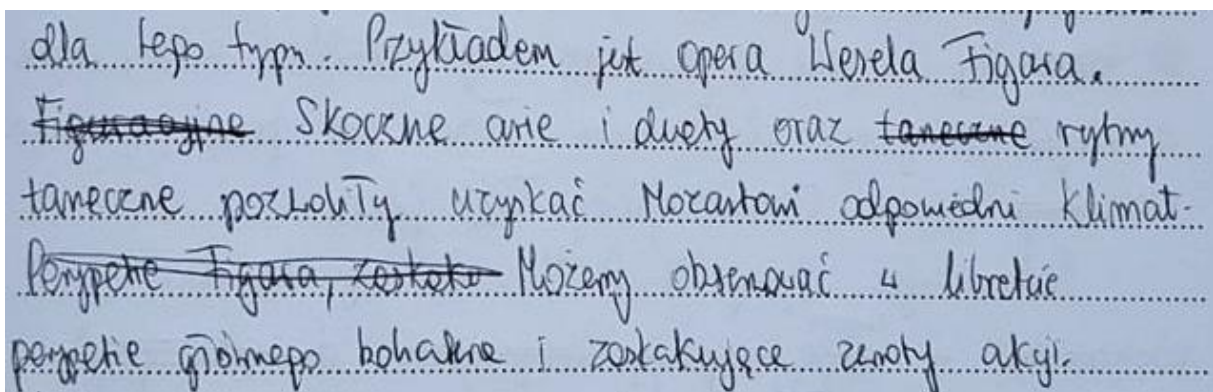 dla tego typu. Przykładem jest opera Wesela Figara.
Figuracyjne Skoczne arie i duety oraz taneczne rytmy
taneczne pozwoliły uzyskać Mozartowi odpowiedni klimat.
Perypetie Figara, zaskaku Możemy obserwować w libretcie
perypetie głównego bohatera i zaskakujące zwroty akcji.